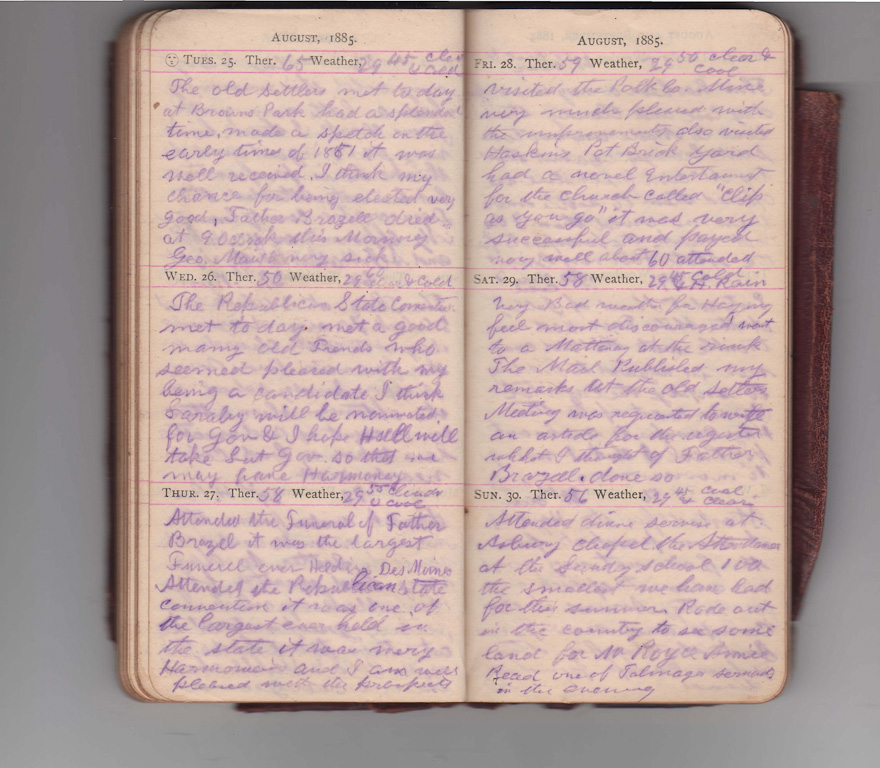 August, 1885.
Tues. 25. Ther. 65 Weather, 29 45 clear
& cool
The old settlers met to day
at Browns Park had a splendid
time, made a speech on the
early times of 1851 it was
well received. I think my
chance for being elected very
good, Father Brazell died
at 9 Oclock this Morning
Geo. very sick
Wed. 26. Ther. 50 Weather, 29 & Cold
The Republican State Convention
met to day. met a good
many old Friends who
seemed pleased with my
being a candidate I think
Laraby will be nominated
for Gov & I hope Hull will
take Lut Gov. so that we
may have Harmoney
Thur. 27. Ther. 58 Weather, 29 55 cloudy
& cool
Attended the Funeral of Father
Brazel it was the largest
Funeral ever Held in Des Moines
Attended the Republican State
convention it was one of
the largest ever held in
the state it was very
Harmonious and I am well
pleased with the prospects
August, 1885.
Fri. 28. Ther. 59 Weather, 29 50 clear &
cool
visited the Polk Co. Mine
very much pleased with
the improvements also visited
Haskins Pat Brick yard
had a novel Entertainment
for the church called "Clip
as you go" it was very
successful and payed
very well about 60 attended
Sat. 29. Ther. 58 Weather, 29 45 Cold
& H. Rain
Very Bad weather for Haying
feel most discouraged went
to a at the rink
The Mail Published my
remarks at the old settlers
Meeting was requested to write
an article for the register
what I thought of Father
Brazel. done so
Sun. 30. Ther. 56 Weather, 29 45 Cool
& clear
Attended divine service at
Asbury chapel the Attendance
at the Sunday school 100
the smallest we have had
for this summer. Rode out
in the country to see some
land for Mr Royce Annie
Read one of Talmage sermons
in the evening